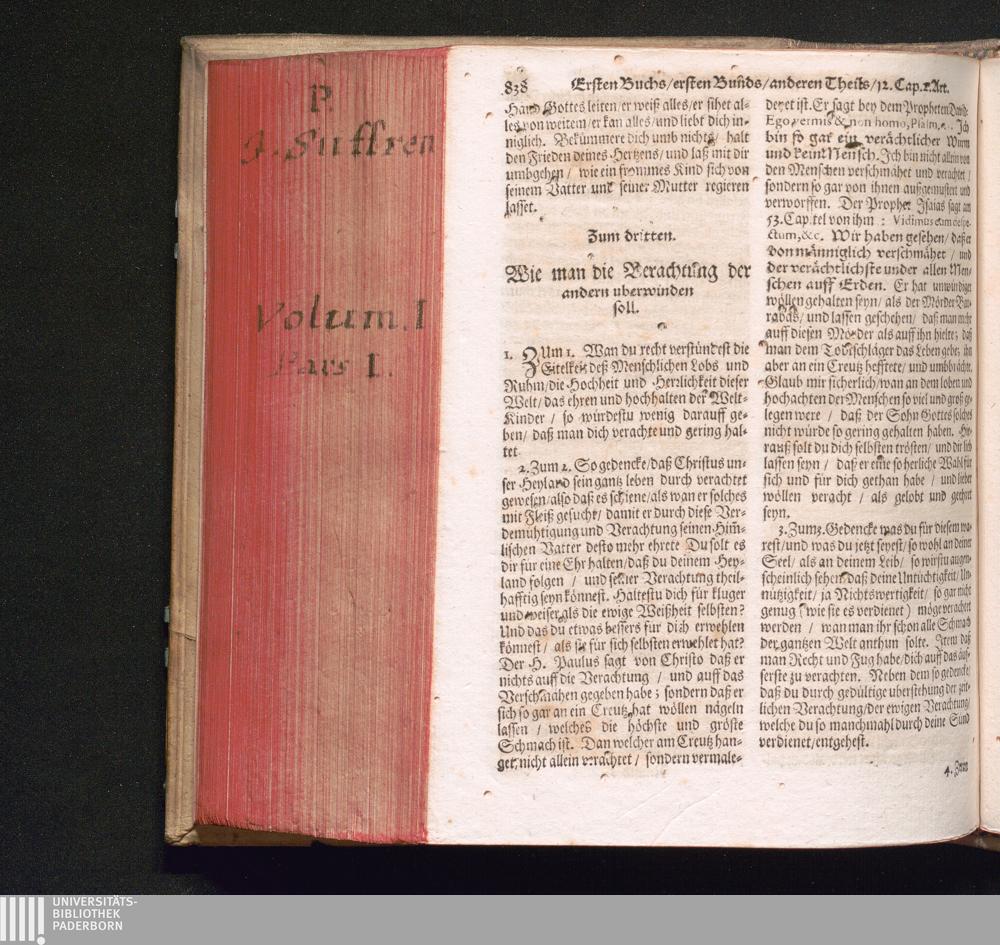 P.
J. Suffren
Volum. I
Pars I.
838 Ersten Buchs/ersten Bunds/anderen Theils/12. Cap. 1. Art.
Hand Gottes leiten/er weiß alles/er sihet al-
les von weitem/er kan alles/und liebt dich in-
niglich. Bekümmere dich umb nichts/ halt
den Frieden deines Hertzens/ und laß mit dir
umbgehen/ wie ein frommes Kind sich von
seinem Vatter und seiner Mutter regieren
lasset.
Zum dritten.
Wie man die Verachtung der
andern uberwinden
soll.
1. Zum 1. Wan du recht verstündest die
Eitelkeit deß Menschlichen Lobs und
Ruhm/die Hochheit und Herzlichkeit dieser
Welt/ das ehren und hochhalten der Welt-
Kinder / so würdestu wenig darauff ge-
ben/ daß man dich verachte und gering hal-
tet.
2. Zum 2. So gedencke/daß Christus un-
ser Heyland sein gantz leben durch verachtet
gewesen/also daß es schiene/als wan er solches
mit Fleiß gesucht/ damit er durch diese Ver-
demühtigung und Verachtung seinen Him̃-
lischen Vatter desto mehr ehrete Du solt es
dir für eine Ehr halten/daß du deinem Hey-
land folgen / und seiner Verachtung theil-
hafftig seyn könnest. Haltestu dich für kluger
und weiser als die ewige Weißheit selbsten?
Und das du etwas bessers für dich erwehlen
könnest / als sie für sich selbsten erwehlet hat?
Der H. Paulus sagt von Christo daß er
nichts auff die Verachtung / und auff das
Verschmahen gegeben habe; sondern daß er
sich so gar an ein Creutz hat wöllen nägeln
lassen / welches die höchste und gröste
Schmach ist. Dan welcher am Creutz han-
get/nicht allein verachtet / sondern vermale-
deyet ist. Er sagt bey dem Propheten David:
Ego vermis & non homo, Psalm. Ich
bin so gar ein verächtlicher Wurm
und kein Mensch. Ich bin nicht allein von
den Menschen verschmähet und verachtet/
sondern so gar von ihnen außgemustert und
verworffen. Der Prophet Isaias sagt am
53. Capittel von ihm : Vidimus eum despe-
ctum, &c. Wir haben gesehen/ daß er
von männiglich verschmähet / und
der verächtlichste under allen Men-
schen auff Erden. Er hat unwürdiger
wöllen gehalten seyn/ als der Mörder Bar-
rabas/ und lassen geschehen/ daß man mehr
auff diesen Mörder als auff ihn hielte; daß
man dem Todtschläger das Leben gebe; ihn
aber an ein Creutz hefftete/ und umbbrächte.
Glaub mir sicherlich/wan an dem loben und
hochachten der Menschen so viel und groß ge-
legen were / daß der Sohn Gottes solches
nicht würde so gering gehalten haben. He-
rauß solt du dich selbsten trösten/ und dir lieb
lassen seyn / daß er eine so herliche Wahl für
sich und für dich gethan habe / und lieber
wöllen veracht / als gelobt und geehret
seyn.
3. Zum 3. Gedencke was du für diesem wa-
rest/und was du jetzt seyest/ so wohl an deiner
Seel/ als an deinem Leib/ so wirstu augen-
scheinlich sehen/ daß deine Untüchtigkeit/ Un-
nützigkeit/ ja Nichtswertigkeit/ so gar nicht
genug (wie sie es verdienet) möge verachtet
werden / wan man ihr schon alle Schmach
der gantzen Welt anthun solte. Item daß
man Recht und Fug habe/dich auff das äus-
serste zu verachten. Neben dem so gedencke/
daß du durch gedültige uberstehung der zeit-
lichen Verachtung/der ewigen Verachtung/
welche du so manchmahl durch deine Sünd
verdienet/entgehest.
4. Zum
UNIVERSITÄTS-
BIBLIOTHEK
PADERBORN